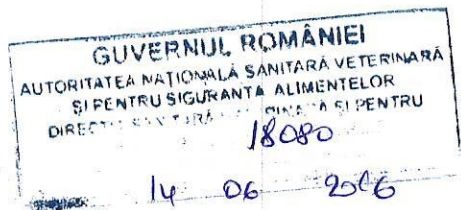 GUVERNUL ROMÂNIEI
AUTORITATEA NAȚIONALĂ SANITARĂ VETERINARĂ
ȘI PENTRU SIGURANȚA ALIMENTELOR
ȘI PENTRU
18080
14 06 2016